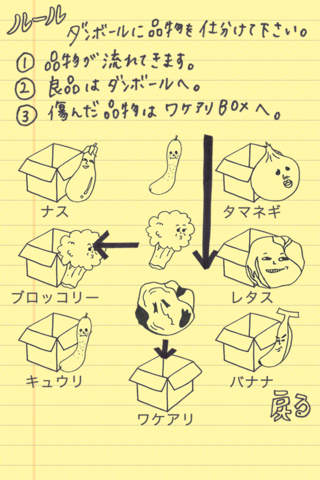 ルール
ダンボールに品物を仕分けて下さい。
① 品物が流れてきます。
② 良品はダンボールへ。
③ 傷んだ品物はワケアリBOXへ。
ナス
タマネギ
ブロッコリー
レタス
キュウリ
バナナ
ワケアリ
戻る